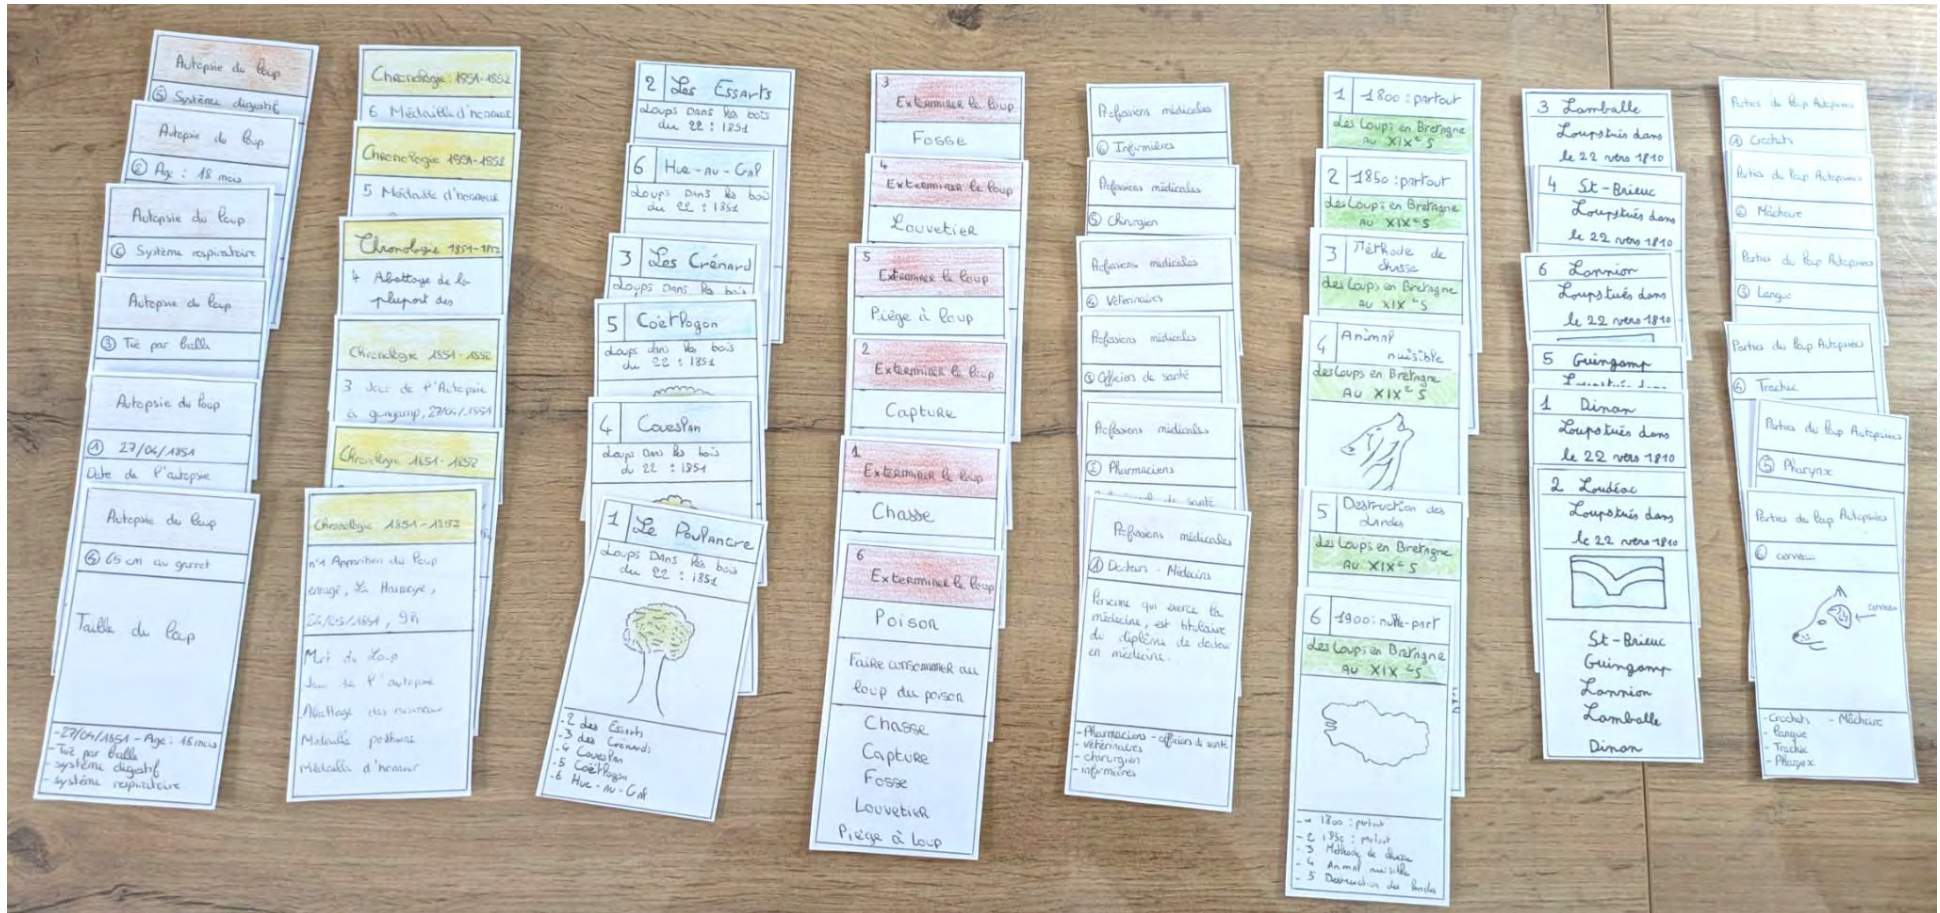 Autopsie du loup
⑤ Système digestif
Autopsie du loup
② Age : 18 mois
Autopsie du loup
⑥ Système respiratoire
Autopsie du loup
③ Tué par balle
Autopsie du loup
① 27/04/1851
Date de l'autopsie
Autopsie du loup
④ 65 cm au garrot
Taille du loup
- 27/04/1851 - Age : 18 mois
- Tué par balle
- système digestif
- système respiratoire
Chronologie : 1851-1852
6 Médaille d'honneur
Chronologie 1851-1852
5 Médaille d'honneur
Chronologie 1851-1852
4 Abattage de la
plupart des
Chronologie 1851-1852
3 Jour de l'Autopsie
à guingamp, 27/04/1851
Chronologie 1851-1852
Chronologie 1851-1852
n°1 Apparition du loup
enragé, La
Mort du Loup
Jour de l'autopsie
Abattage des
Médaille
Médaille d'honneur
2 Les Essarts
Loups Dans les bois
du 22 : 1851
6 Hue-au-Gal
Loups Dans les bois
du 22 : 1851
3 Les Crénard
Loups Dans les bois
5 Coëtlogon
Loups dans les bois
du 22 : 1851
4 Couesplan
Loups dans les bois
du 22 : 1851
1 Le Poulancre
Loups Dans les bois
du 22 : 1851
- 2 des Essarts
- 3 des Crénards
- 4 Couesplan
- 5 Coëtlogon
- 6 Hue-au-Gal
3
Exterminer le loup
Fosse
4
Exterminer le loup
Louvetier
5
Exterminer le loup
Piège à loup
2
Exterminer le loup
Capture
1
Exterminer le loup
Chasse
6
Exterminer le loup
Poison
Faire consommer au
loup du poison
Chasse
Capture
Fosse
Louvetier
Piège à loup
Professions médicales
⑥ Infirmières
Professions médicales
⑤ Chirurgien
Professions médicales
④ Vétérinaires
Professions médicales
③ Officiers de santé
Professions médicales
② Pharmaciens
de santé
Professions médicales
① Docteurs - Médecins
Personne qui exerce la
médecine, est titulaire
du diplôme de docteur
en médecine.
- Pharmaciens - officiers de santé
- vétérinaires
- chirurgien
- infirmières
1 1800 : partout
Les Loups en Bretagne
AU XIXe S
2 1850 : partout
Les Loups en Bretagne
AU XIXe S
3 Méthode de
chasse
Les Loups en Bretagne
AU XIXe S
4 Animal
nuisible
Les Loups en Bretagne
AU XIXe S
5 Destruction des
Landes
Les Loups en Bretagne
AU XIXe S
6 1900 : nulle-part
Les Loups en Bretagne
AU XIXe S
- 1 1800 : partout
- 2 1850 : partout
- 3 Méthode de chasse
- 4 Animal nuisible
- 5 Destruction des Landes
3 Lamballe
Loups tués dans
le 22 vers 1810
4 St-Brieuc
Loups tués dans
le 22 vers 1810
6 Lannion
Loups tués dans
le 22 vers 1810
5 Guingamp
Loups tués dans
1 Dinan
Loups tués dans
le 22 vers 1810
2 Loudéac
Loups tués dans
le 22 vers 1810
St-Brieuc
Guingamp
Lannion
Lamballe
Dinan
Parties du loup Autopsiées
① Crochets
Parties du loup Autopsiées
② Mâchoire
Parties du loup Autopsiées
③ Langue
Parties du loup Autopsiées
Trachée
Parties du loup Autopsiées
⑤ Pharynx
Parties du loup Autopsiées
⑥ cerveau
cerveau
- Crochets - Mâchoire
- Langue
- Trachée
- Pharynx